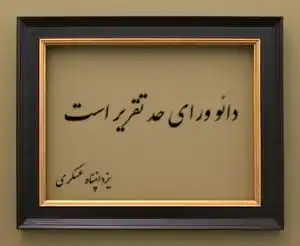 دائو ورای حد تقریر است
یزدانپناه عسکری